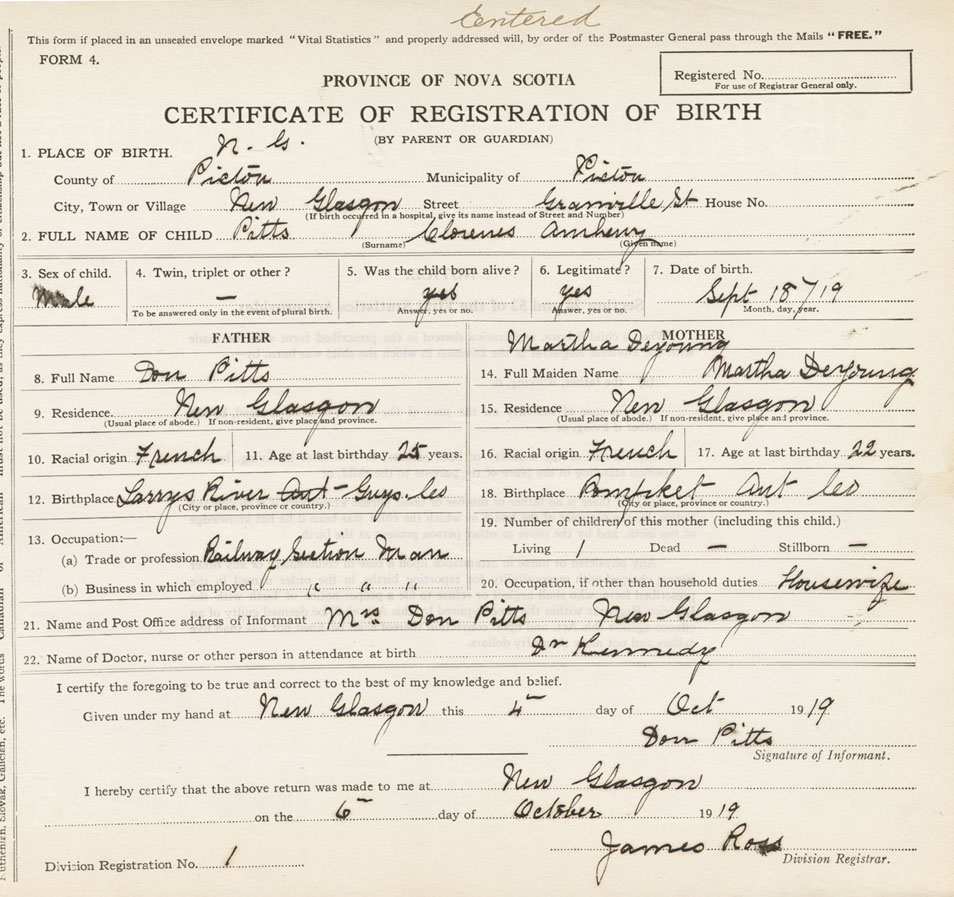 Entered
This form if placed in an unsealed envelope marked "Vital Statistics" and properly addressed will, by order of the Postmaster General pass through the Mails "FREE."
FORM 4.
PROVINCE OF NOVA SCOTIA
Registered No.
For use of Registrar General only.
CERTIFICATE OF REGISTRATION OF BIRTH
(BY PARENT OR GUARDIAN)
1. PLACE OF BIRTH. N. G.
County of Pictou Municipality of Pictou
City, Town or Village New Glasgow Street Granville St House No.
(If birth occurred in a hospital, give its name instead of Street and Number)
2. FULL NAME OF CHILD Pitts
(Surname) (Given name)
3. Sex of child. 4. Twin, triplet or other? 5. Was the child born alive? 6. Legitimate? 7. Date of birth.
Male — yes yes Sept 18/19
To be answered only in the event of plural birth. Answer, yes or no. Answer, yes or no. Month, day, year.
FATHER MOTHER
Martha Deyoung
8. Full Name Don Pitts 14. Full Maiden Name Martha Deyoung
9. Residence. New Glasgow 15. Residence New Glasgow
(Usual place of abode.) If non-resident, give place and province. (Usual place of abode.) If non-resident, give place and province.
10. Racial origin French 11. Age at last birthday 25 years. 16. Racial origin French 17. Age at last birthday 22 years.
12. Birthplace Larrys River Ant Guys. Co 18. Birthplace Pomfket Ant Co
(City or place, province or country.) (City or place, province or country.)
19. Number of children of this mother (including this child.)
13. Occupation:—
(a) Trade or profession Railway Section Man Living 1 Dead — Stillborn —
(b) Business in which employed " " " 20. Occupation, if other than household duties Housewife
21. Name and Post Office address of Informant Mrs Don Pitts New Glasgow
22. Name of Doctor, nurse or other person in attendance at birth Dr Kennedy
I certify the foregoing to be true and correct to the best of my knowledge and belief.
Given under my hand at New Glasgow this 4 day of Oct 1919
Don Pitts
Signature of Informant.
I hereby certify that the above return was made to me at New Glasgow
on the 6 day of October 1919
James Ross
Division Registration No. 1 Division Registrar.